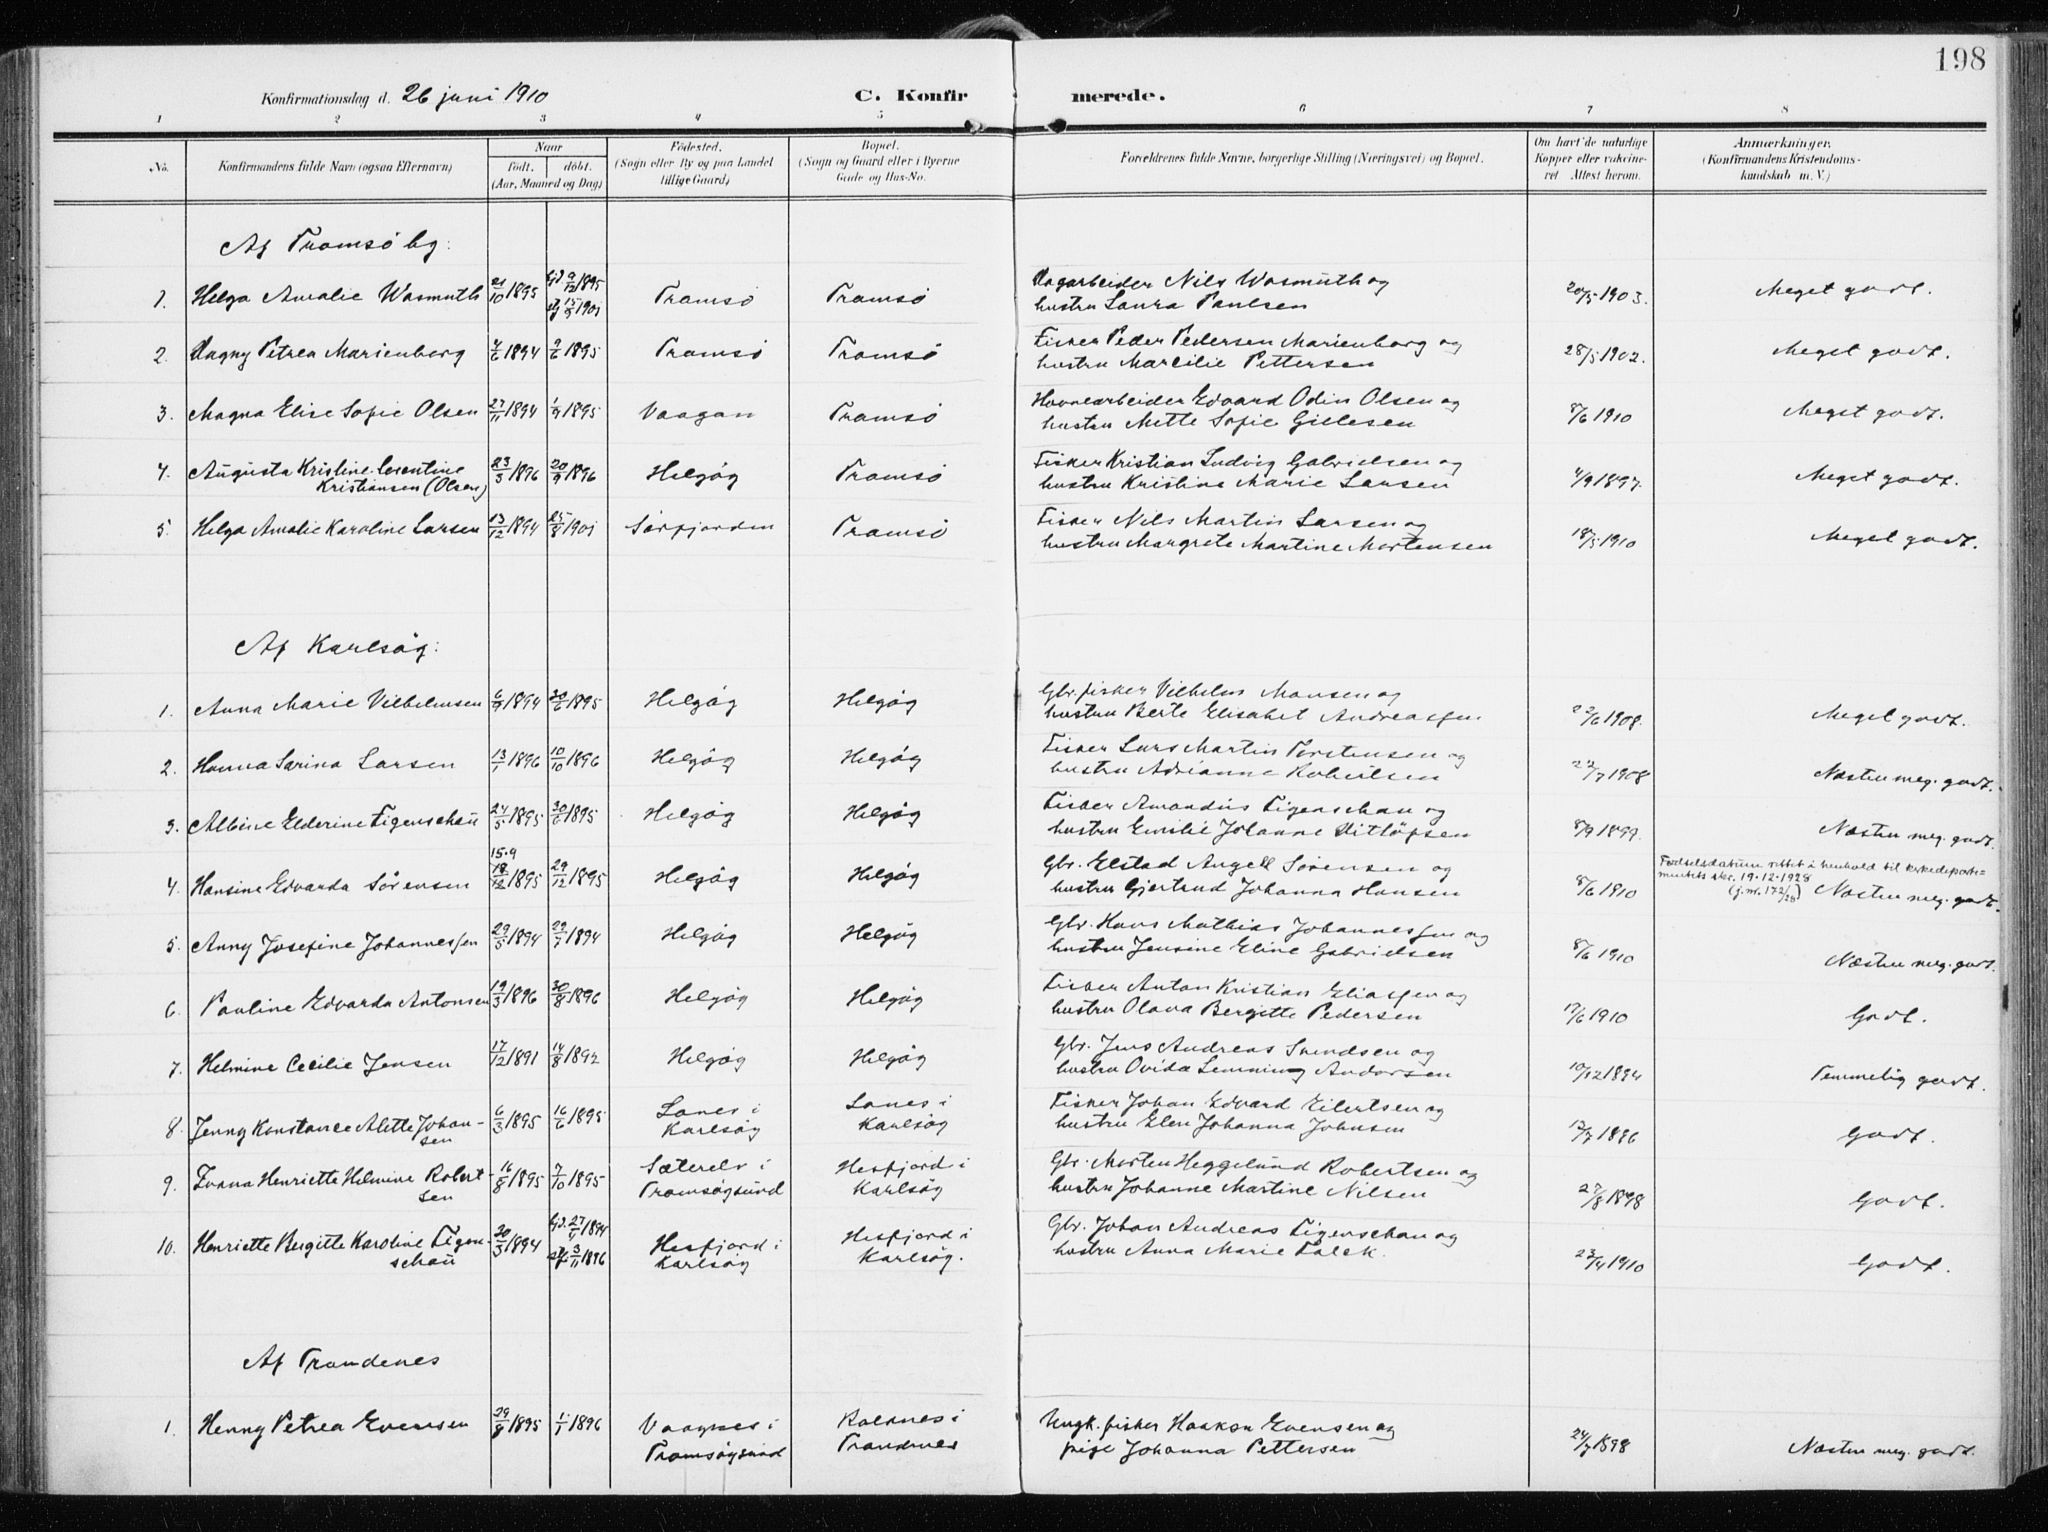 198
Konfirmationsdag d. 26 juni 1910
C. Konfirmerede.
1 2 3 4 5 6 7 8
No. | Konfirmandens fulde Navn (ogsaa Efternavn) | Naar födt. döbt. (Aar, Maaned og Dag) | Födested. (Sogn eller By og paa Landet tillige Gaard) | Bopæl. (Sogn og Gaard eller i Byerne Gade og Hus-No. | Forældrenes fulde Navne, borgerlige Stilling (Næringsvei) og Bopæl. | Om havt de naturlige Kopper eller vakcineret Attest herom. | Anmærkninger. (Konfirmandens Kristendomskundskab m. V.)
Af Tromsö by:
1. Helga Amalie Wasmuth 21/10 1895 hjd. 9/12 1895 Tromsö Tromsö Dagarbeider Nils Wasmuth og 20/5 1903. Meget godt.
stf 15/9 1901 hustru Laura Paulsen
2. Dagny Petrea Marienborg 4/6 1894 9/6 1895 Tromsö Tromsö Fisker Peder Pedersen Marienborg og 28/5 1902. Meget godt.
hustru Marcilie Pettersen
3. Magna Elise Sofie Olsen 27/11 1894 1/9 1895 Vaagan Tromsö Havnearbeider Edvard Odin Olsen og 8/6 1910 Meget godt.
hustru Mette Sofie Gillesen
4. Augusta Kristine Lorentine 23/3 1896 20/9 1896 Helgöy Tromsö Fisker Kristian Ludvig Gabrielsen og 4/9 1897. Meget godt.
Kristiansen (Olsen) hustru Kristine Marie Larsen
5. Helga Amalie Karoline Larsen 13/12 1894 25/8 1901 Sörfjorden Tromsö Fisker Nils Martin Larsen og 18/5 1910 Meget godt.
hustru Margrete Martine Mortensen
Af Karlsöy:
1. Anna Marie Vilhelmsen 6/9 1894 30/6 1895 Helgöy Helgöy Gbr. fisker Vilhelm Monsen og 22/6 1908. Meget godt.
hustru Berte Elisabet Andreassen
2. Hanna Sarina Larsen 13/1 1896 10/10 1896 Helgöy Helgöy Fisker Lars Martin Torstensen og 22/7 1908 Næsten meg. godt.
hustru Adrianne Robertsen
3. Albine Elderine Figenschau 24/5 1895 30/6 1895 Helgöy Helgöy Fisker Amandus Figenschau og 8/9 1899. Næsten meg. godt.
hustru Emilie Johanne Ditlöfsen
15.9
4. Hansine Edvarda Sörensen 18/12 1895 29/12 1895 Helgöy Helgöy Gbr. Elstad Angell Sörensen og 8/6 1910 Födselsdatum rettet i henhold til kirkedeparte-
mentets skr. 19.12.1928
hustru Gjertrud Johanna Hansen (j.nr. 172/28) Næsten meg. godt.
5. Anny Josefine Johannessen 29/5 1894 29/7 1894 Helgöy Helgöy Gbr. Hans Mathias Johannessen og 8/6 1910 Næsten meg. godt.
hustru Jensine Eline Gabrielsen
6. Pauline Edvarda Antonsen 19/3 1896 30/8 1896 Helgöy Helgöy Fisker Anton Kristian Eliassen og 17/6 1910 Godt.
hustru Olava Bergitte Pedersen
7. Helmine Cecilie Jensen 17/12 1891 14/8 1892 Helgöy Helgöy Gbr. Jens Andreas Svendsen og 10/12 1894 Temmelig godt.
hustru Ovida Lemming Andorsen
8. Jenny Konstance Alette Johan- 6/3 1895 16/6 1895 Lanes i Lanes i Fisker Johan Edvard Eilertsen og 17/7 1896 Godt.
sen Karlsöy Karlsöy hustru Elen Johanna Johnsen
9. Ivana Henriette Helmine Robert- 16/8 1895 7/10 1895 Sæterelv i Hesfjord i Gbr. Morten Heggelund Robertsen og 27/8 1898 Godt.
sen Tromsöysund Karlsöy hustru Johanne Martine Nilsen
10. Henriette Bergitte Karoline Figen- 20/3 1894 hjd. 27/4 1894 Hesfjord i Hesfjord i Gbr. Johan Andreas Figenschau og 23/4 1910 Godt.
schau stf 3/11 1896 Karlsöy Karlsöy. hustru Anna Marie Falck.
Af Trandenes
1. Henny Petrea Evensen 29/8 1895 1/1 1896 Vaagnes i Kaldnes i Ungk. fisker Haakon Evensen og 24/7 1898 Næsten meg. godt.
Tromsöysund Trandenes pige Johanna Pettersen